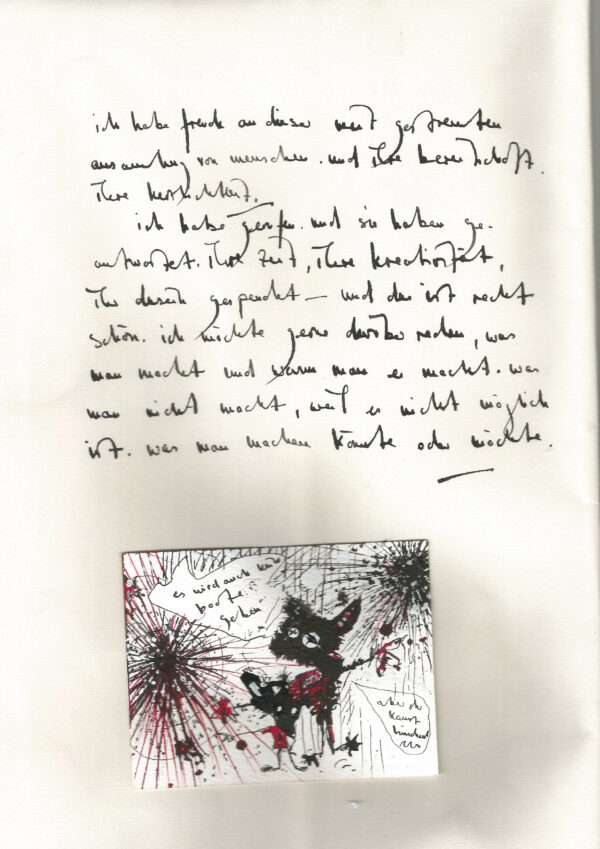 ich habe freude an dieser weit gestreuten
ansammlung von menschen. und ihre bereitschaft.
ihre herzlichkeit.
ich habe gerufen. und sie haben ge-
antwortet. Ihre Zeit, Ihre kreativität,
Ihr dasein gespendet — und das ist recht
schön. ich möchte gerne darüber reden, was
man macht und warum man es macht. was
man nicht macht, weil es nicht möglich
ist. was man machen könnte oder möchte.
es wird auch keine
boote
geben
aber du
kannst